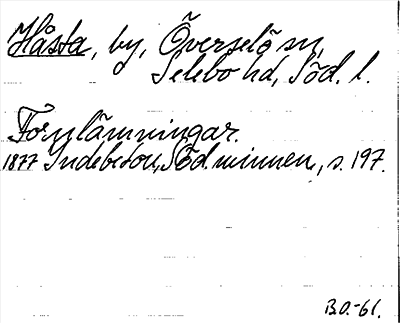 Håsta, by, Överselö sn,
Selebo hd, Söd. l.
Fornlämningar.
1877 Indebetou, Söd. minnen, s. 197.
B.O.-61.